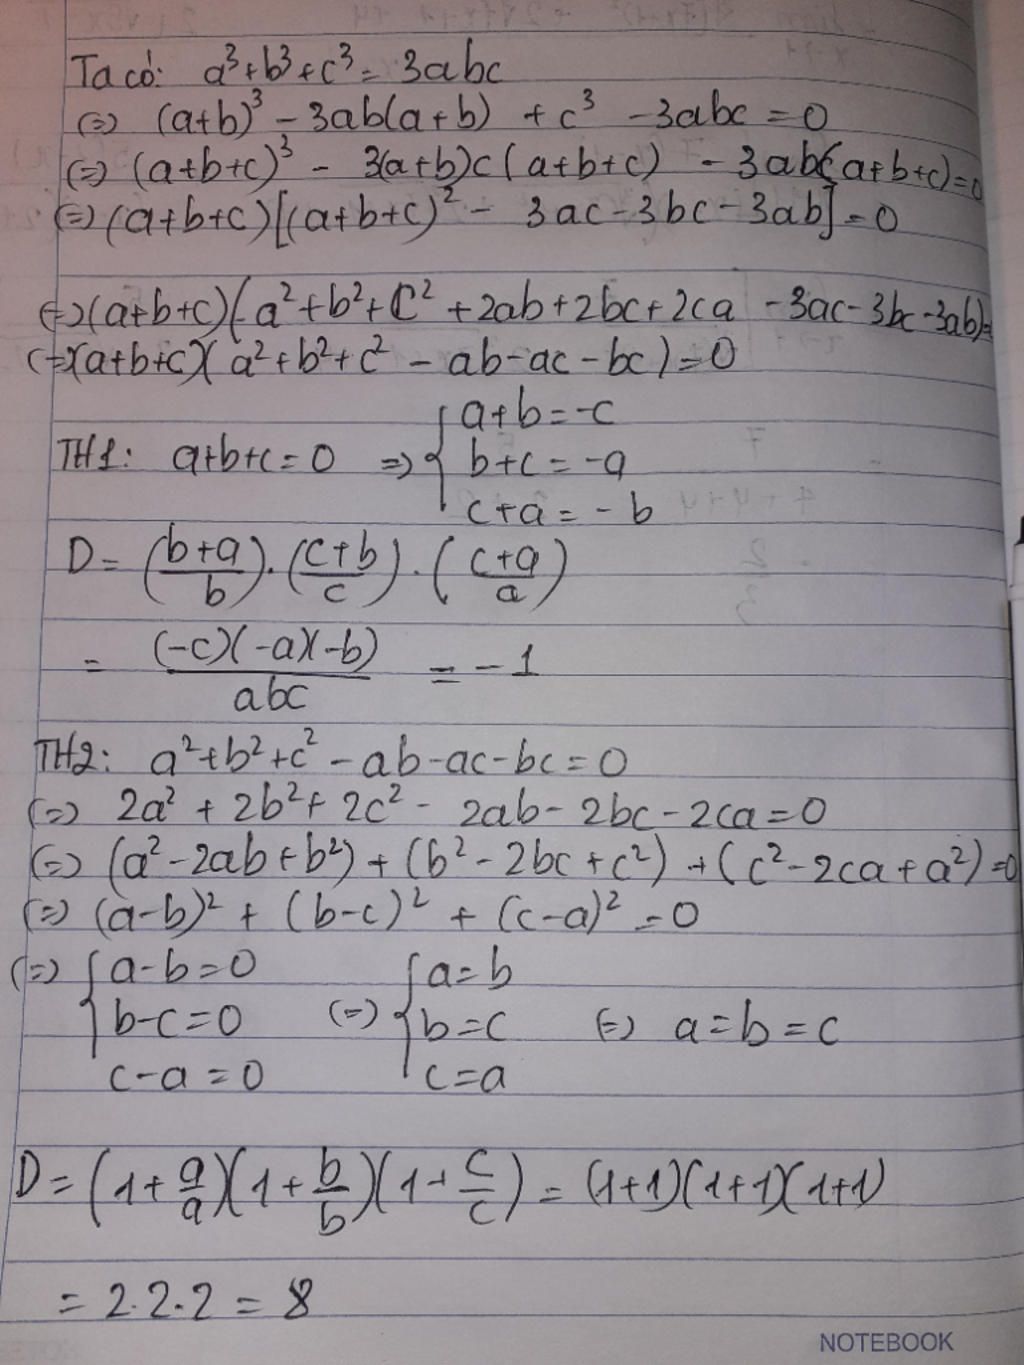 Ta có: a³+b³+c³= 3abc
(=) (a+b)³ - 3ab(a+b) + c³ - 3abc = 0
(=) (a+b+c)³ - 3(a+b)c(a+b+c) - 3ab(a+b+c)=0
(=) (a+b+c)[(a+b+c)² - 3ac-3bc-3ab]=0
(=)(a+b+c)(a²+b²+c²+2ab+2bc+2ca -3ac-3bc-3ab)=
(=)(a+b+c)(a²+b²+c² - ab-ac-bc)=0
TH1: a+b+c=0 => { a+b=-c
b+c=-a
c+a=-b
D= (b+a)/b . (c+b)/c . (c+a)/a
= (-c)(-a)(-b)/abc = -1
TH2: a²+b²+c²-ab-ac-bc=0
(=) 2a²+2b²+2c²- 2ab-2bc-2ca=0
(=) (a²-2ab+b²)+(b²-2bc+c²)+(c²-2ca+a²)=0
(=) (a-b)² + (b-c)² + (c-a)² = 0
(=) { a-b=0 { a=b
b-c=0 (=) b=c (=) a=b=c
c-a=0 c=a
D= (1+a/a)(1+b/b)(1+c/c) = (1+1)(1+1)(1+1)
= 2.2.2 = 8
NOTEBOOK